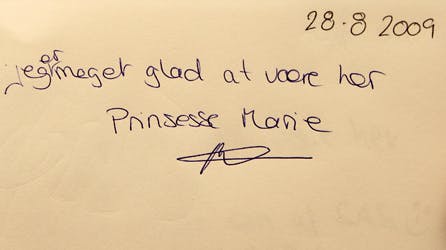 28.8 2009
jeg er meget glad at være her
Prinsesse Marie